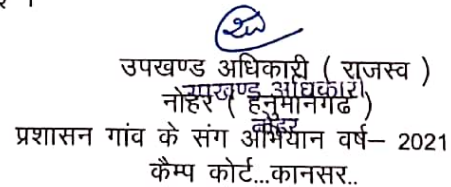 उपखण्ड अधिकारी ( राजस्व )
उपखण्ड अधिकारी
नोहर ( हनुमानगढ )
नोहर
प्रशासन गांव के संग अभियान वर्ष– 2021
कैम्प कोर्ट...कानसर..